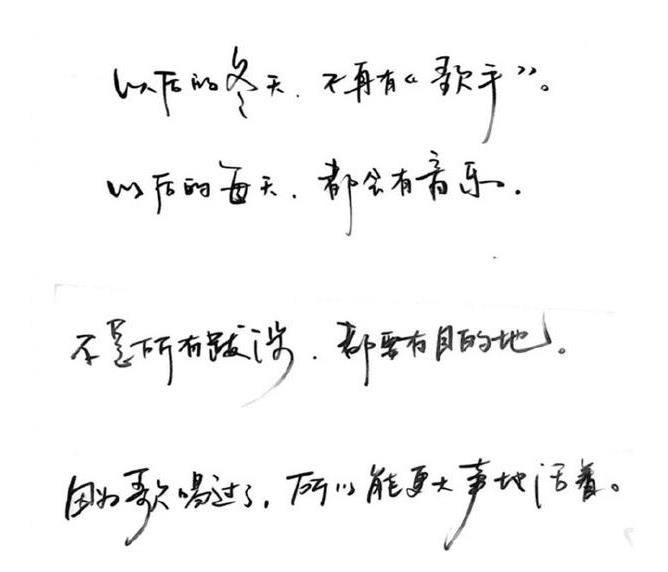 以后的冬天，不再有“歌手”。
以后的每天，都会有音乐。
不是所有跋涉，都要有目的地。
因为歌唱过了，所以能更大声地活着。